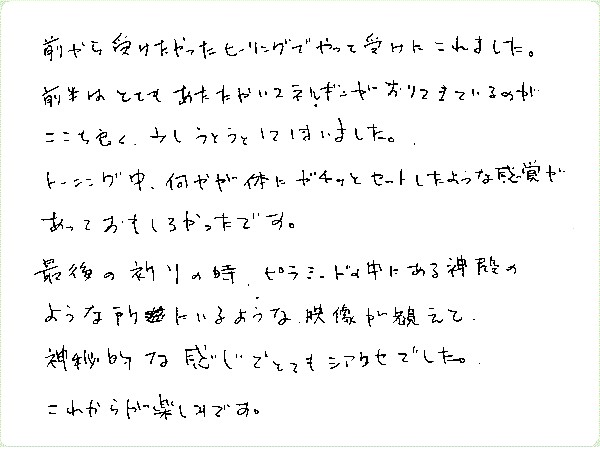 前から受けたかったヒーリングでやって受けにこれました。
前半はとてもあたたかいエネルギーがおりてきているのが
ここち良く、少しうとうとしてしまいました。
トーニング中、何かが体にガチッとセットしたような感覚が
あっておもしろかったです。
最後の祈りの時、ピラミッドの中にある神殿の
ような所にいるような映像が観えて、
神秘的な感じでとてもシアワセでした。
これからが楽しみです。